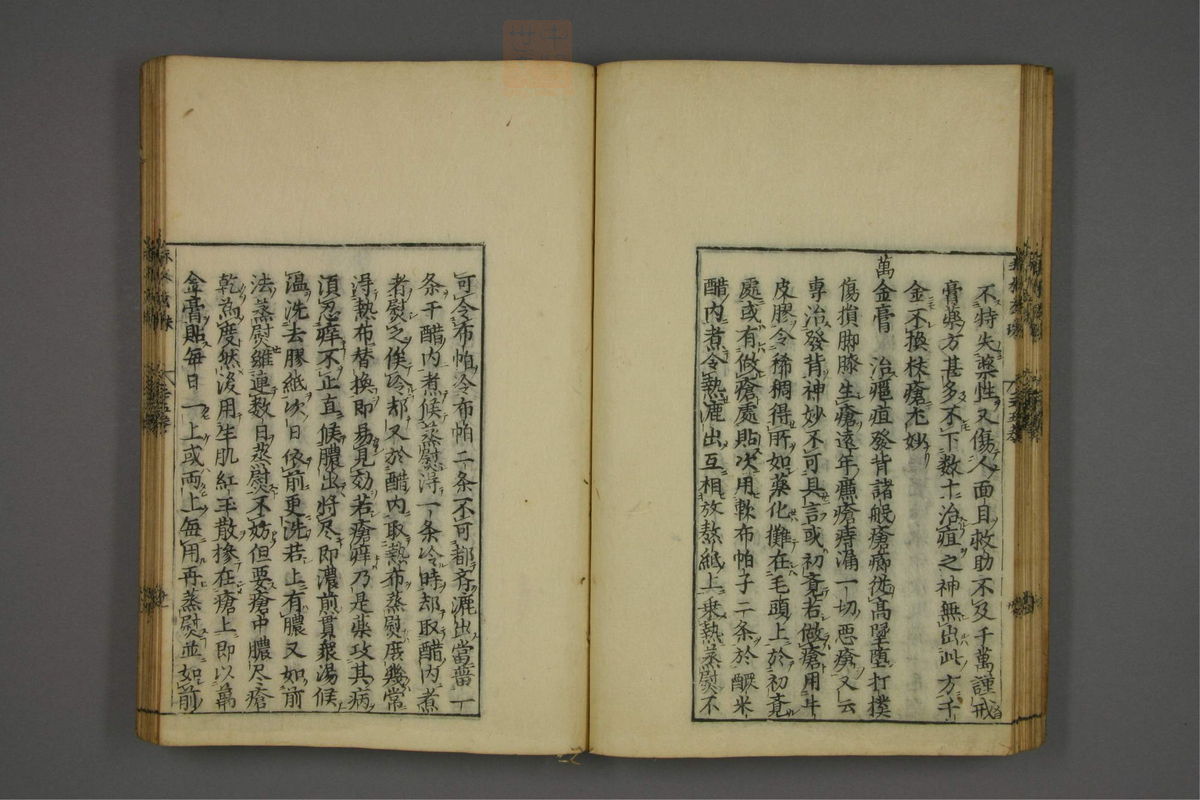 不特失藥性又傷人面目救助不及千萬謹戒
膏藥方甚多不下数十治疽之神無出此方千
金不換杖瘡尤妙
萬金膏 治癰疽發背諸般瘡癤從高墜墮打撲
傷損脚膝生瘡遠年臁瘡痔漏一切惡瘡又云
專治發背神妙不可具言或初覚若做瘡用牛
皮膠令稀稠得所如藥化攤在毛頭上於初覚
處或有做瘡處貼次用軟布帕子二条於釅米
醋内煮令熱漉出互相放熬紙上乗熱蒸熨不
可令布帕冷布帕二条不可都齐漉出當蓄一
条于醋内煮候蒸熨得一条冷時却取醋内煮
者熨之俟冷却又於醋内取熱布蒸熨庶幾常
得熱布替換即易見効若瘡痒乃是藥攻其病
須忍痒不止直候膿出将尽即濃煎貫衆湯候
温洗去膠紙次日依前更洗若上有膿又如前
法蒸熨雖連数日蒸熨不妨但要瘡中膿尽瘡
乾為度然後用生肌紅玉散摻在瘡上即以萬
金膏貼每日一上或両上每用再蒸熨並如前